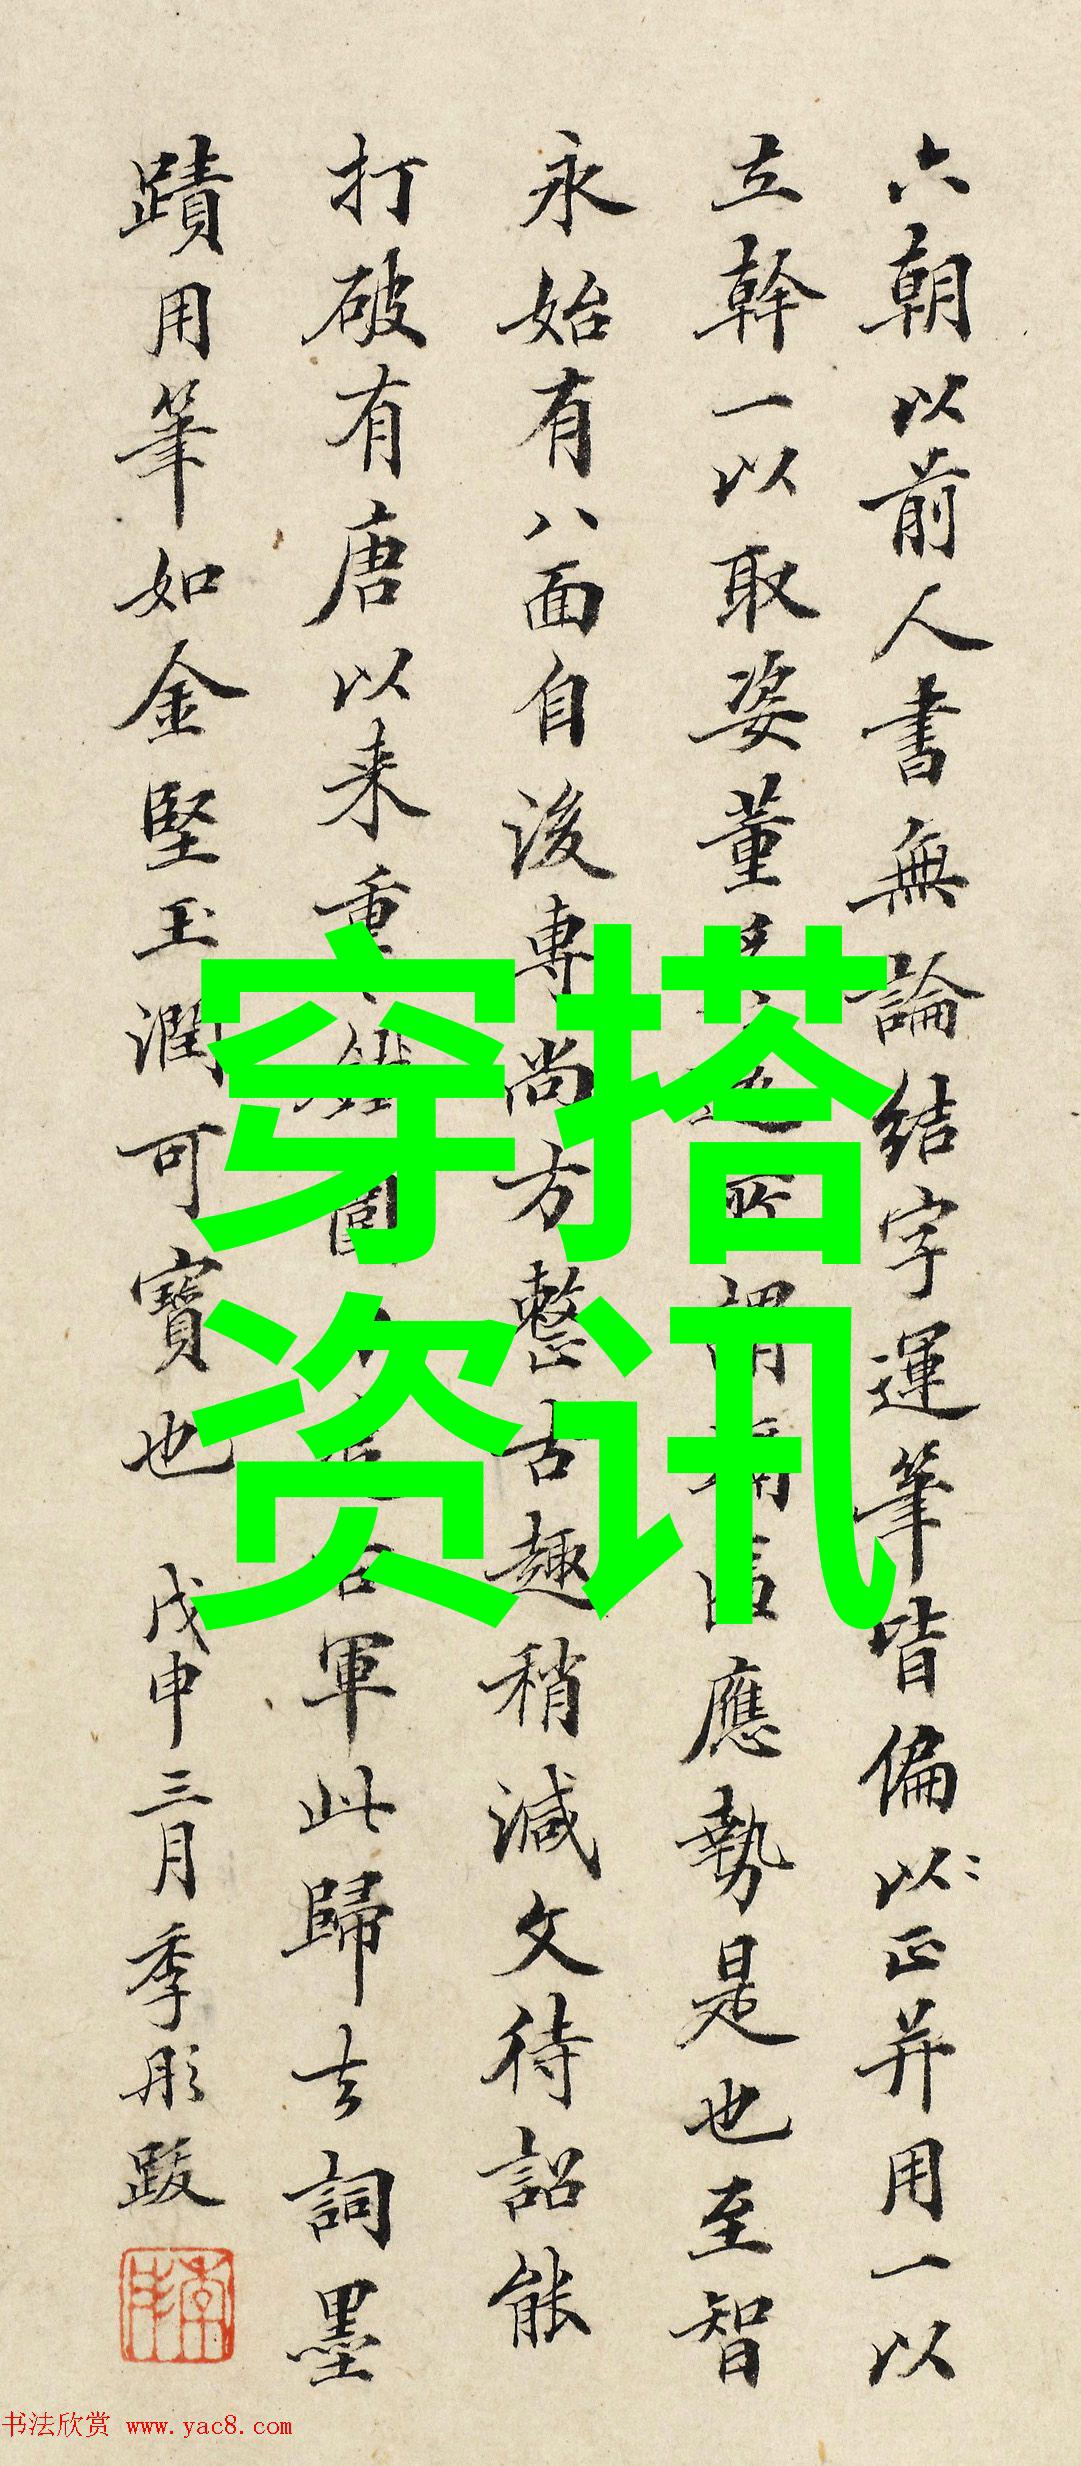 六朝以前人書無論結字運筆皆偏以正并用一以
立幹一以取姿董所謂應勢是也至智
永始有八面自後專尚方整古趣稍減文待詔能
打破有唐以来重軍此歸去詞墨
蹟用筆如金堅玉潤可寶也 戊申三月季彤跋
穿搭
资讯
书法欣赏 www.yac8.com